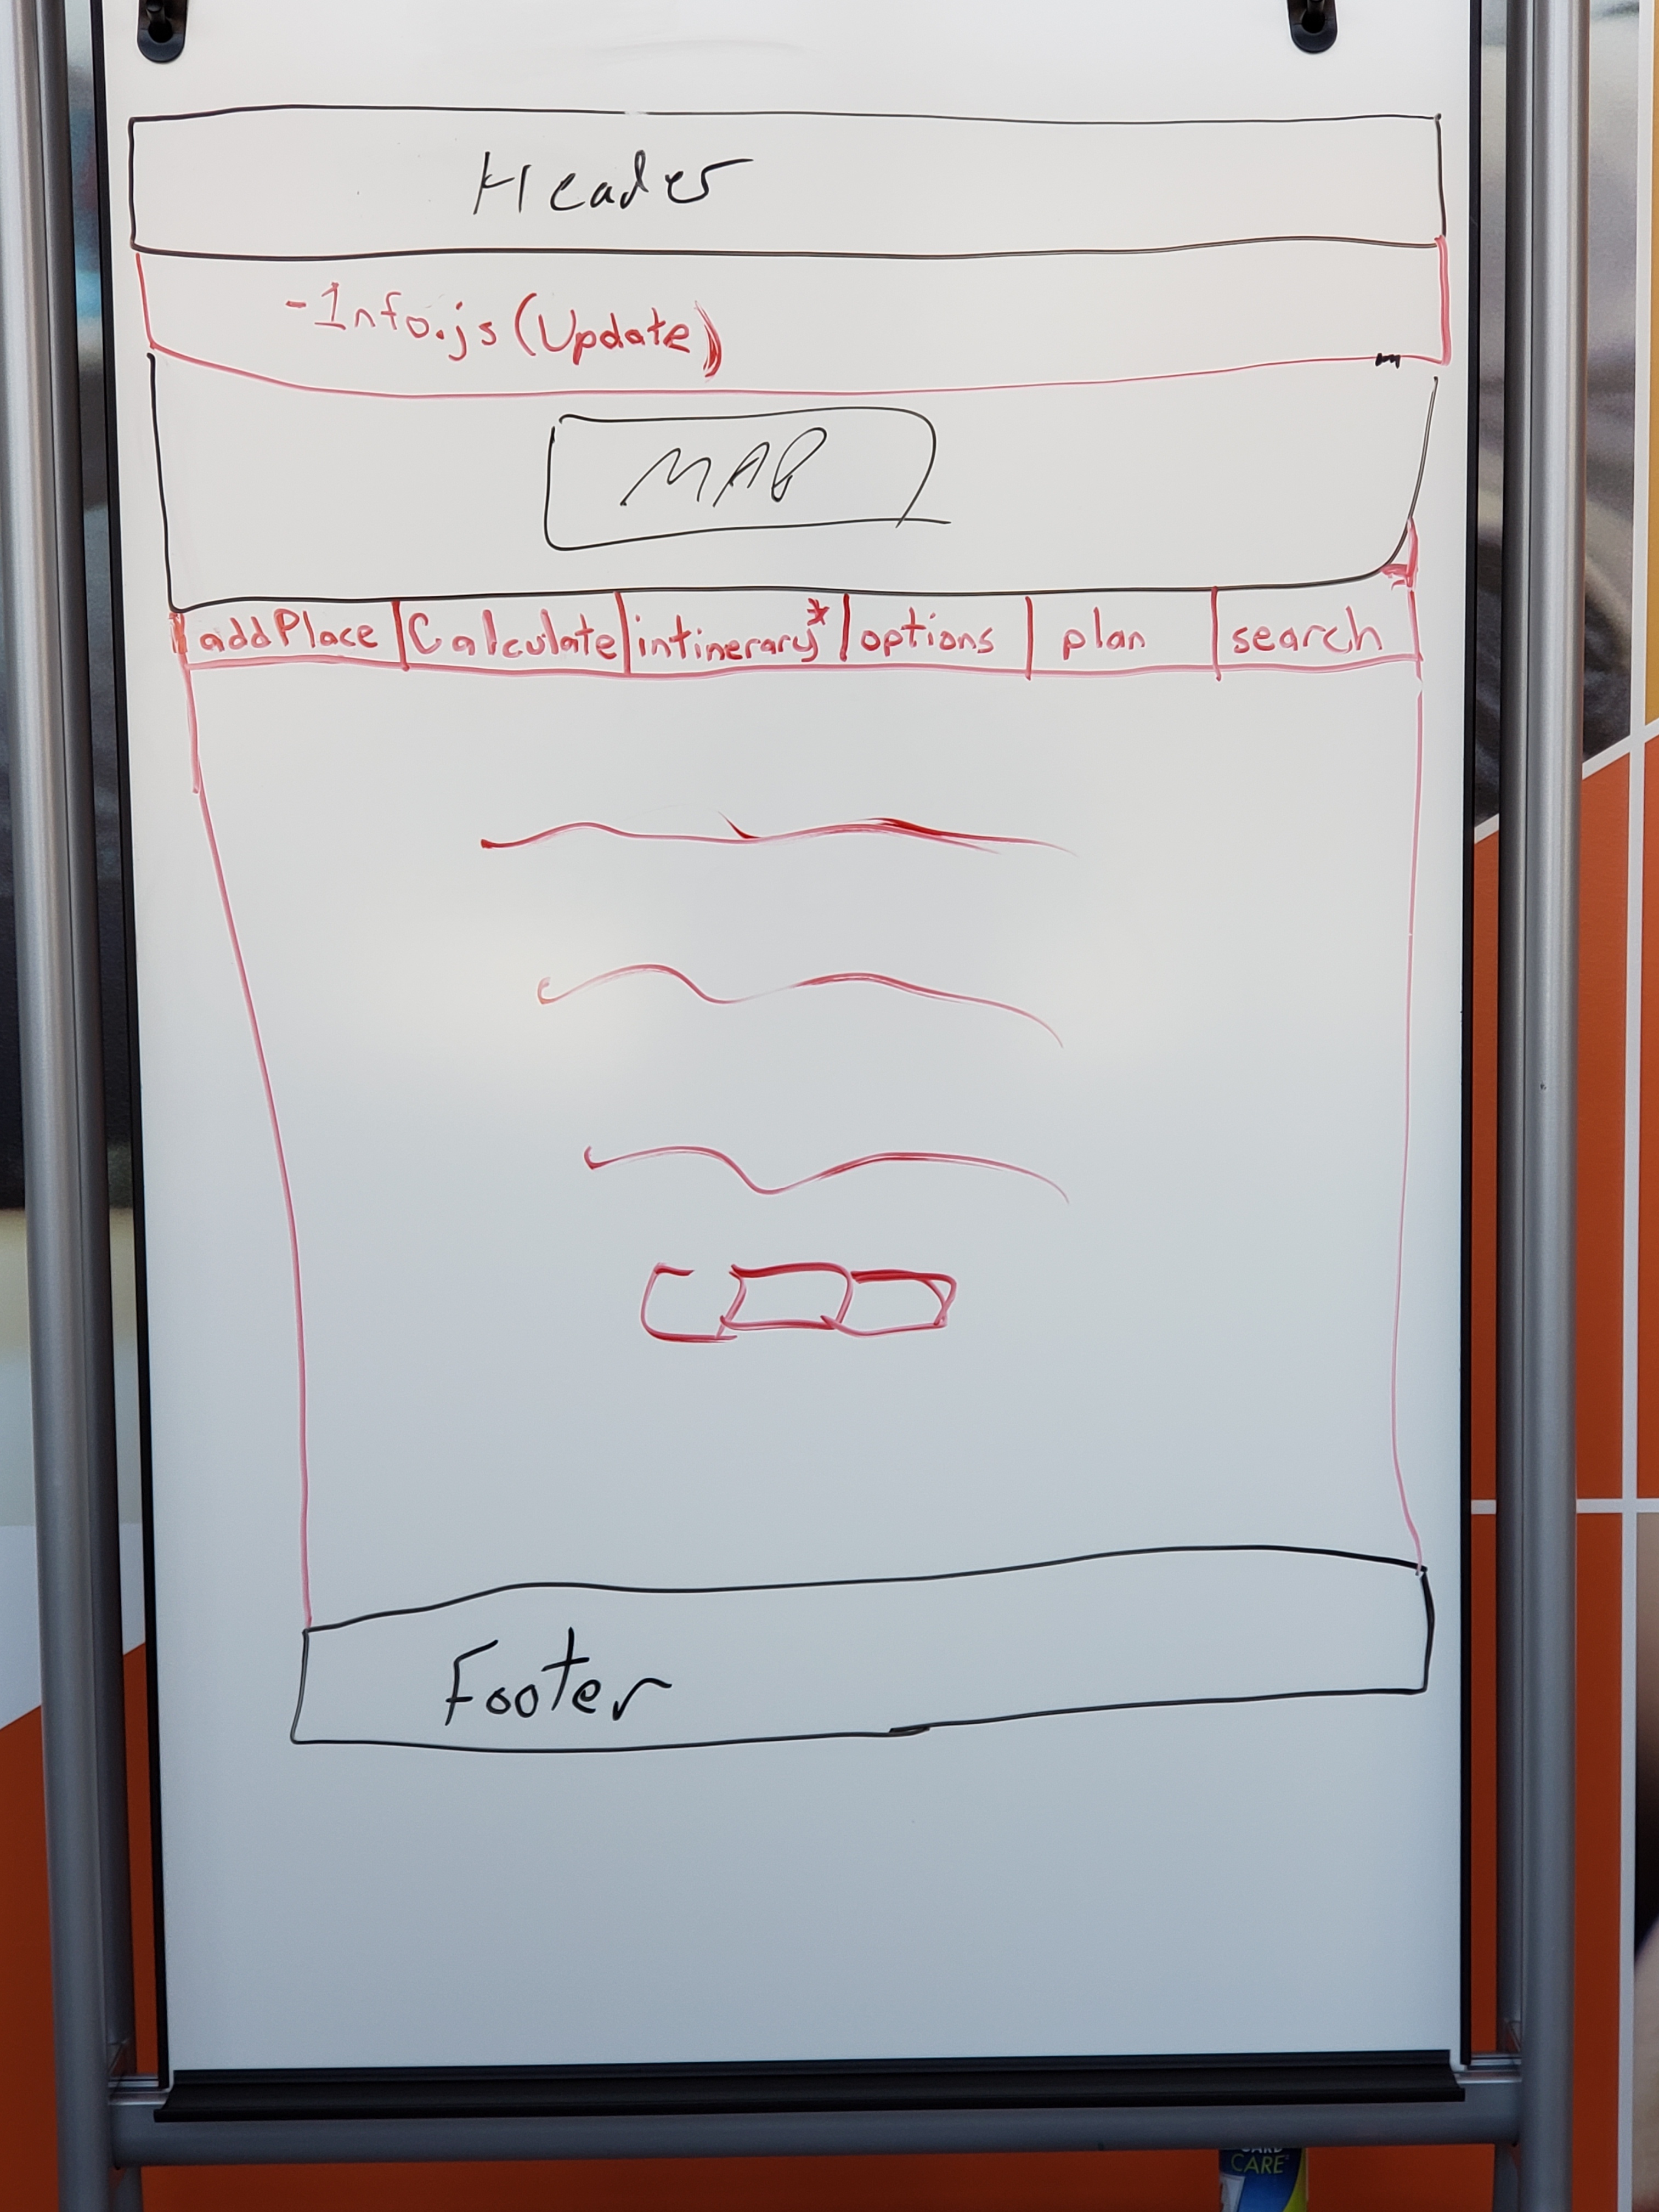 Header
-Info.js (Update)
MAP
addPlace | Calculate | intinerary* | options | plan | search
Footer
CARE